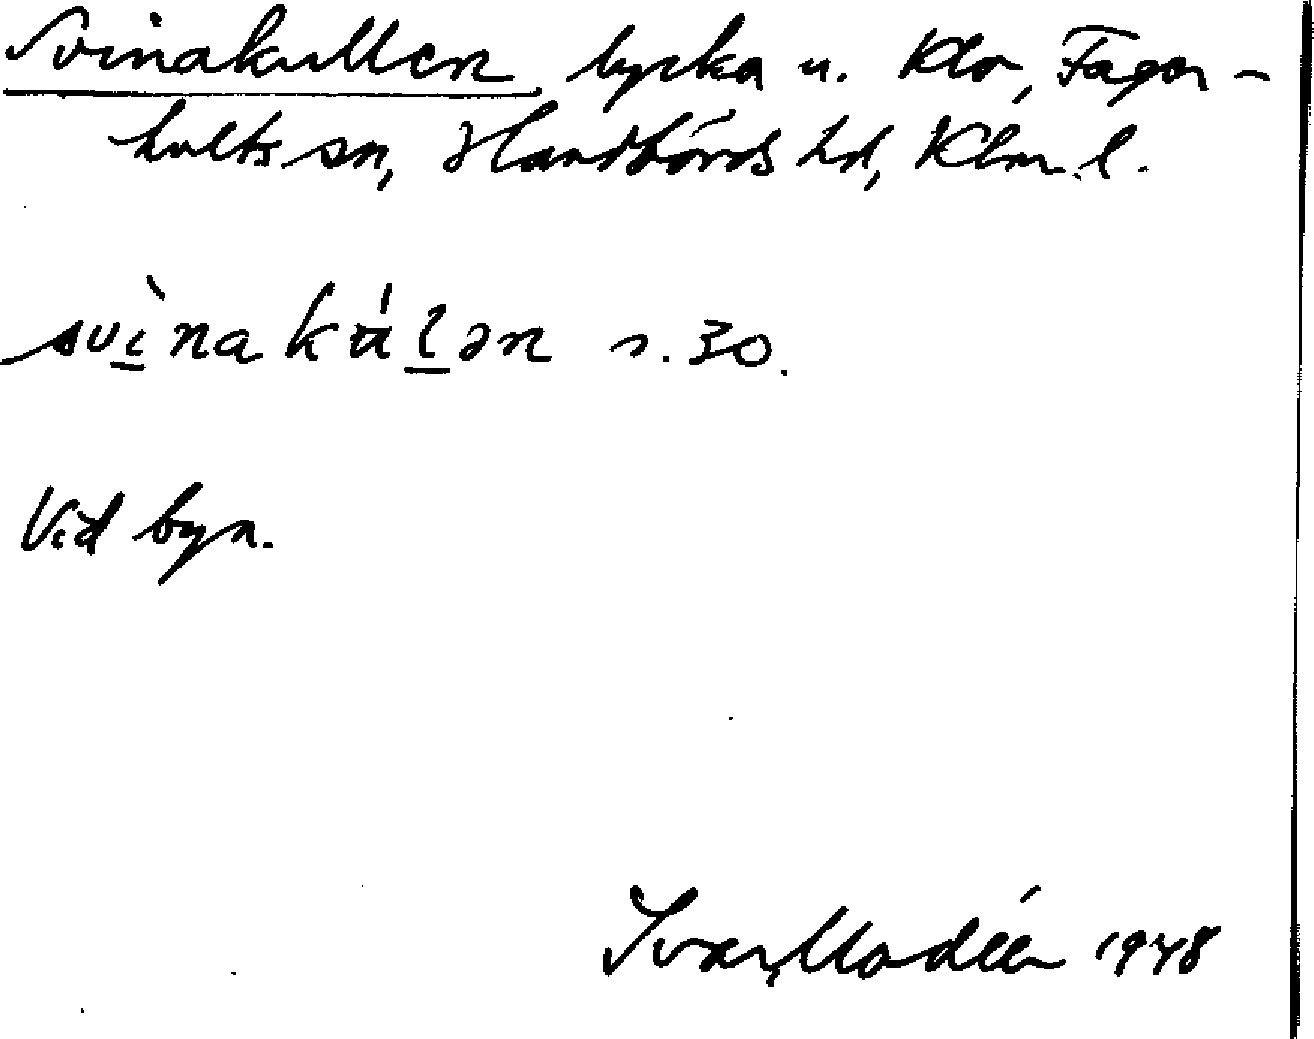 Svinakullen lycka u. Klo, Fager-
hults sn, Handbörds hd, Klm. l.
svìnakúlən s. 30.
Vid byn.
Ivar Modéer 1948